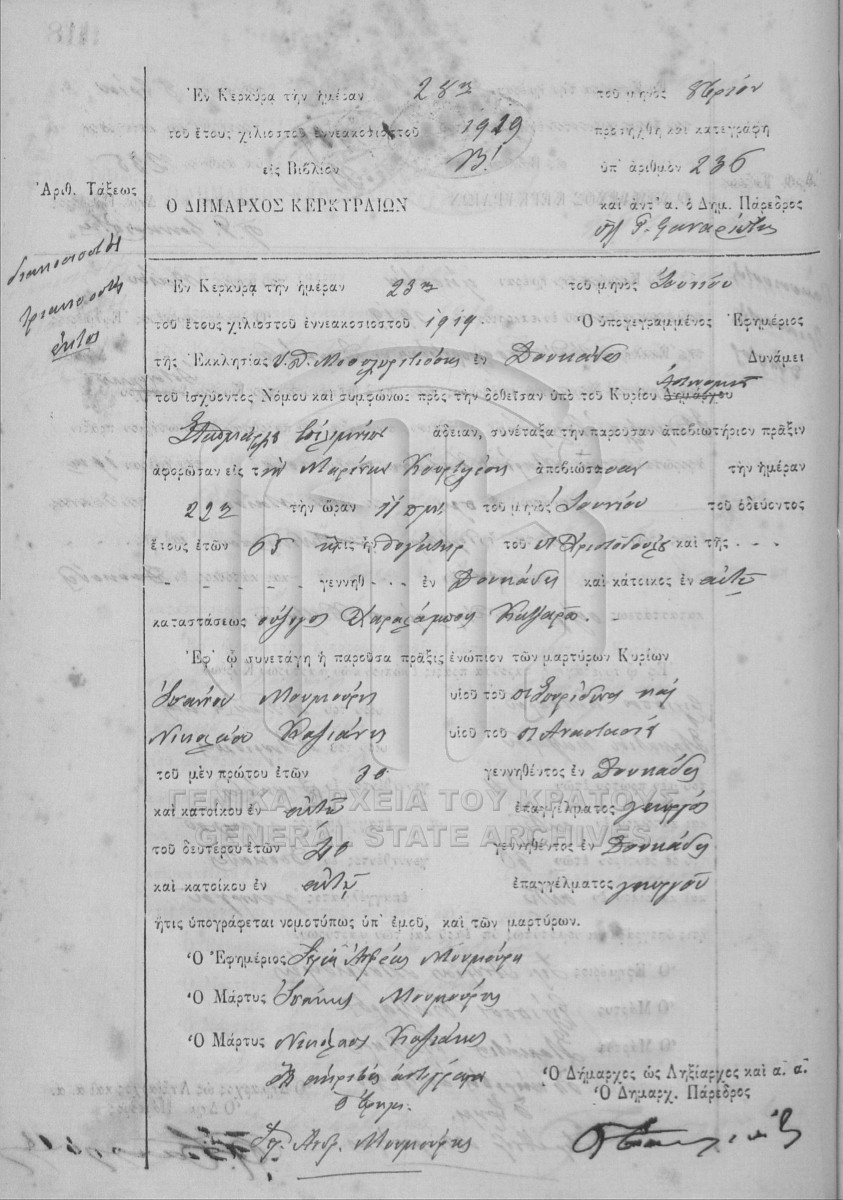 Ἐν Κερκύρᾳ τὴν ἡμέραν 28ῃ τοῦ μηνὸς 8βρίου
τοῦ ἔτους χιλιοστοῦ ἐννεακοσιοστοῦ 1919 προσήχθη καὶ κατεγράφη
εἰς Βιβλίον Β! ὑπ' ἀριθμὸν 236
Ἀριθ. Τάξεως
Ὁ ΔΗΜΑΡΧΟΣ ΚΕΡΚΥΡΑΙΩΝ καὶ ἀντ' α. ὁ Δημ. Πάρεδρος
διακοσιοστὴ
τριακοστὴ
ἕκτος
Ἐν Κερκύρᾳ τὴν ἡμέραν 23ῃ τοῦ μηνὸς Ἰουνίου
τοῦ ἔτους χιλιοστοῦ ἐννεακοσιοστοῦ 1919 Ὁ ὑπογεγραμμένος Ἐφημέριος
τῆς Ἐκκλησίας Υ. Θ. ἐν Δουκάδες Δυνάμει
τοῦ ἰσχύοντος Νόμου καὶ συμφώνως πρὸς τὴν δοθεῖσαν ὑπὸ τοῦ Κυρίου Δημάρχου
ἄδειαν, συνέταξα τὴν παροῦσαν ἀποβιωτήριον πρᾶξιν
ἀφορῶσαν εἰς τὴν Μαρίναν ἀποβιώσασαν τὴν ἡμέραν
22ῃ τὴν ὥραν 11 πμ. τοῦ μηνὸς Ἰουνίου τοῦ ὁδεύοντος
ἔτους ἐτῶν 65 ἥτις ἡ θυγάτηρ τοῦ π Χριστοδούλου καὶ τῆς - - -
γεννηθ - - - ἐν Δουκάδες καὶ κάτοικος ἐν αὐτῷ
καταστάσεως σύζυγος Χαραλάμπους
Ἐφ' ᾧ συνετάγη ἡ παροῦσα πρᾶξις ἐνώπιον τῶν μαρτύρων Κυρίων
Μουμούρης υἱοῦ τοῦ π Σπυρίδωνος καὶ
Νικολάου υἱοῦ τοῦ π Ἀναστασίου
τοῦ μὲν πρώτου ἐτῶν 30 γεννηθέντος ἐν Δουκάδες
καὶ κατοίκου ἐν αὐτῷ ἐπαγγέλματος γεωργοῦ
τοῦ δευτέρου ἐτῶν 40 γεννηθέντος ἐν Δουκάδες
καὶ κατοίκου ἐν αὐτῷ ἐπαγγέλματος γεωργοῦ
ἥτις ὑπογράφεται νομοτύπως ὑπ' ἐμοῦ, καὶ τῶν μαρτύρων.
Ὁ Ἐφημέριος Ἱερεὺς Ἀνδρέας Μουμούρης
Ὁ Μάρτυς Μουμούρης
Ὁ Μάρτυς Νικόλαος
Ἀκριβὲς ἀντίγραφον
Ὁ Ἐφημ.
Ἱερ. Ἀνδ. Μουμούρης
Ὁ Δήμαρχος ὡς Ληξίαρχος καὶ α. α.
Ὁ Δημαρχ. Πάρεδρος
ΓΕΝΙΚΑ ΑΡΧΕΙΑ ΤΟΥ ΚΡΑΤΟΥΣ
GENERAL STATE ARCHIVES